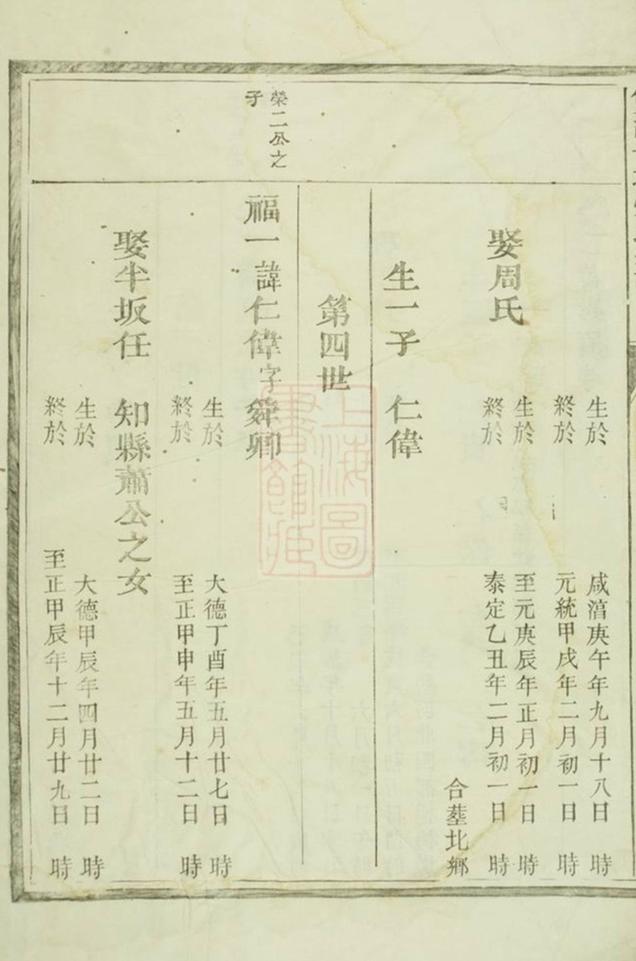 生於 咸淳庚午年九月十八日 時
終於 元統甲戌年二月初一日 時
娶周氏
生於 至元庚辰年正月初一日 時
終於 泰定乙丑年二月初一日 時
合塟北鄉
生一子 仁偉
第四世
榮二公之
子
福一諱仁偉字舜卿
生於 大德丁酉年五月廿七日 時
終於 至正甲申年五月十二日 時
娶半坂任 知縣蕭公之女
生於 大德甲辰年四月廿二日 時
終於 至正甲辰年十二月廿九日 時
上海圖
書館藏